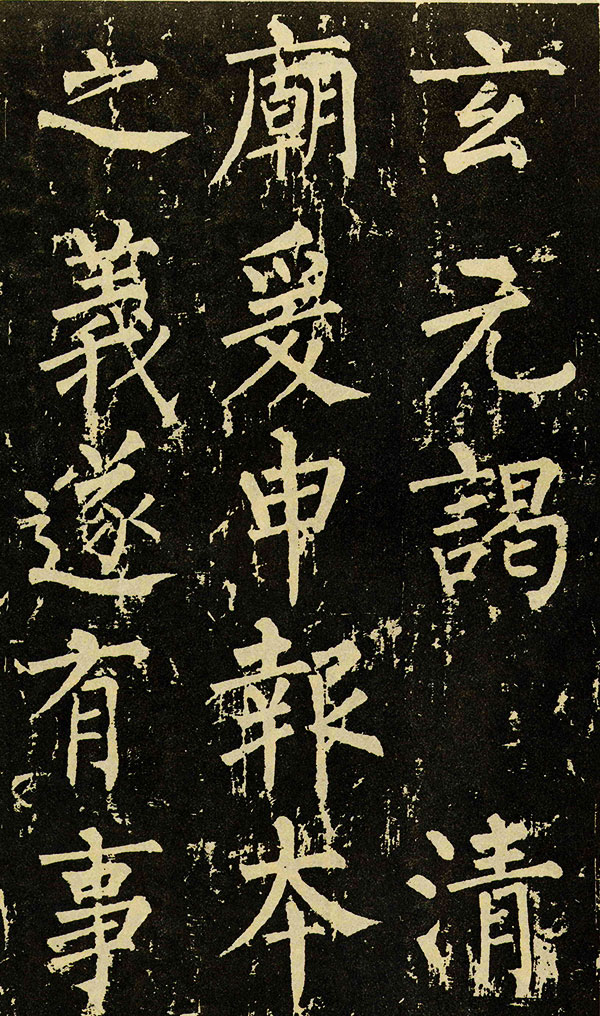 玄元謁 清
廟爰申報本
之義遂有事